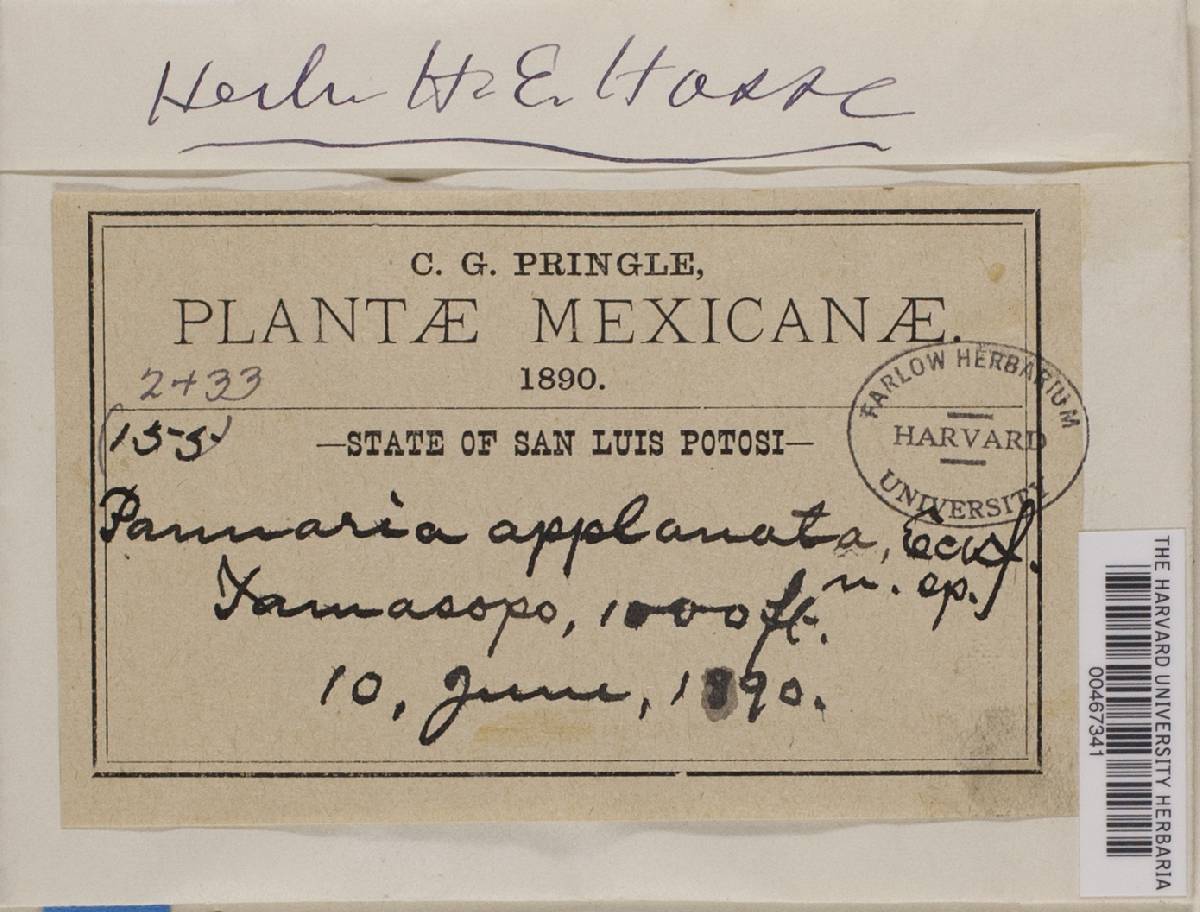 Herb. H. E. Hasse
C. G. PRINGLE,
PLANTÆ MEXICANÆ.
2433
1890.
(155)
—STATE OF SAN LUIS POTOSI—
FARLOW HERBARIUM
HARVARD
UNIVERSITY
Pannaria applanata, Eckf.
n. sp.
Tamasopo, 1000 ft.
10, June, 1890.
THE HARVARD UNIVERSITY HERBARIA
00467341